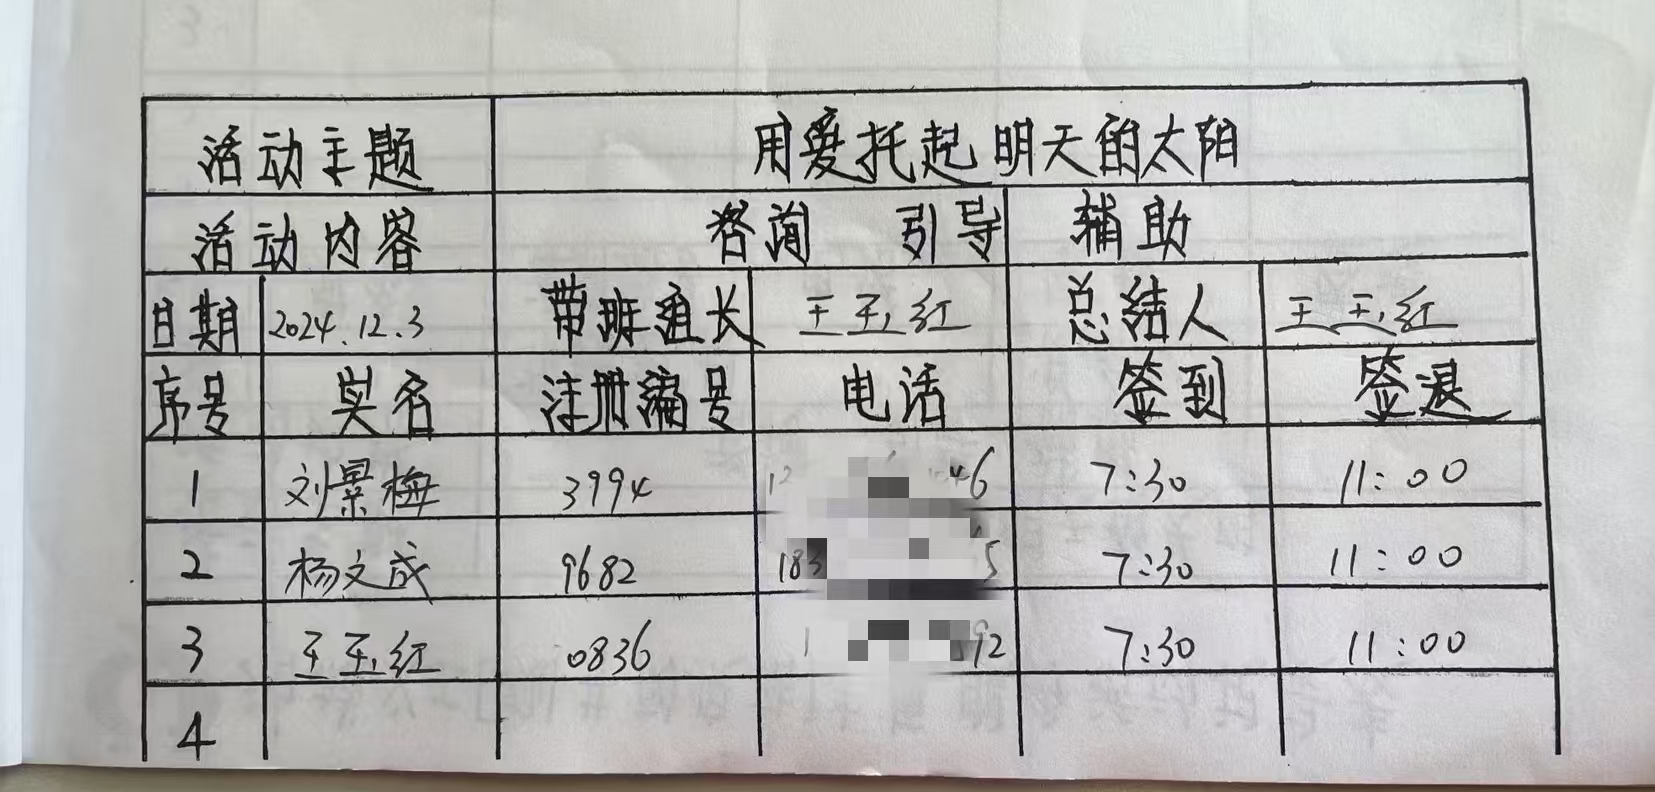 活动主题 用爱托起明天的太阳
活动内容 咨询 引导 辅助
日期 2024.12.3 带班组长 王玉红 总结人 王玉红
序号 姓名 注册编号 电话 签到 签退
1 刘景梅 3994 7:30 11:00
2 杨文成 9682 183 5 7:30 11:00
3 王玉红 0836 1 92 7:30 11:00
4